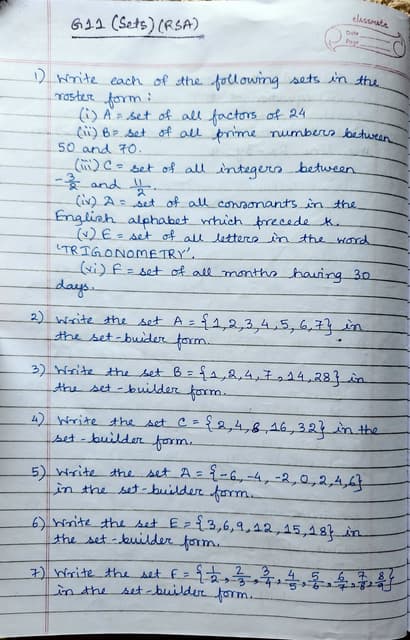 G11 (Sets) (RSA)
classmate
Date
Page
1) Write each of the following sets in the
roster form :
(i) A = set of all factors of 24
(ii) B = set of all prime numbers between
50 and 70.
(iii) C = set of all integers between
-3/2 and 11/2.
(iv) D = set of all consonants in the
English alphabet which precede k.
(v) E = set of all letters in the word
'TRIGONOMETRY'.
(vi) F = set of all months having 30
days.
2) Write the set A = {1,2,3,4,5,6,7} in
the set-buider form.
3) Write the set B = {1,2,4,7,14,28} in
the set-builder form.
4) Write the set C = {2,4,8,16,32} in the
set-builder form.
5) Write the set A = {-6,-4,-2,0,2,4,6}
in the set-builder form.
6) Write the set E = {3,6,9,12,15,18} in
the set-builder form.
7) Write the set F = {1/2, 2/3, 3/4, 4/5, 5/6, 6/7, 7/8, 8/9}
in the set-builder form.